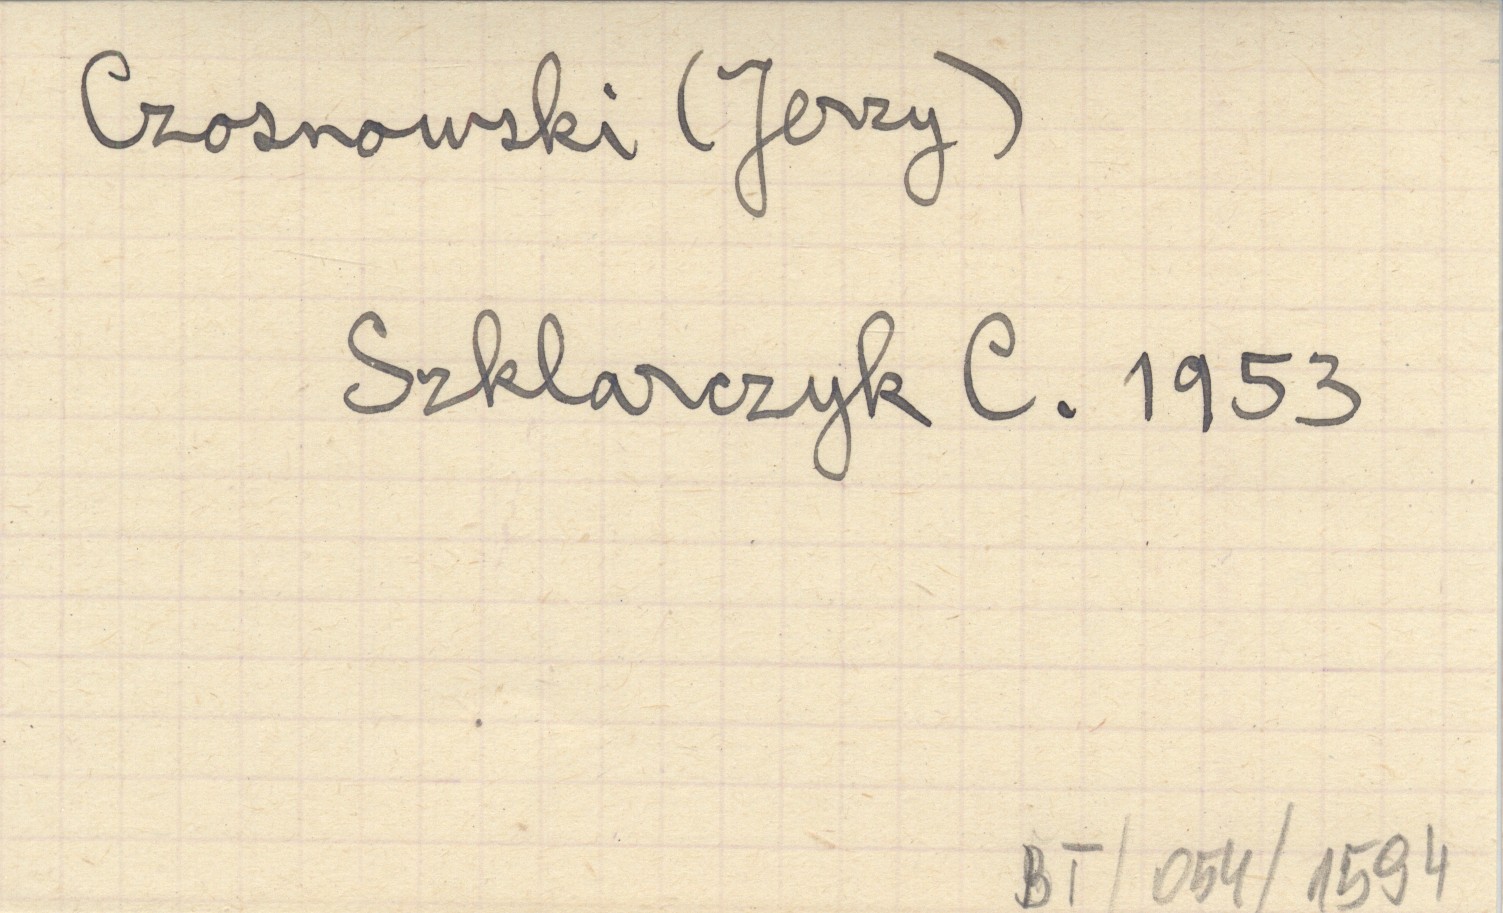 Czosnowski (Jerzy)
Szklarczyk C. 1953
BT/054/1594